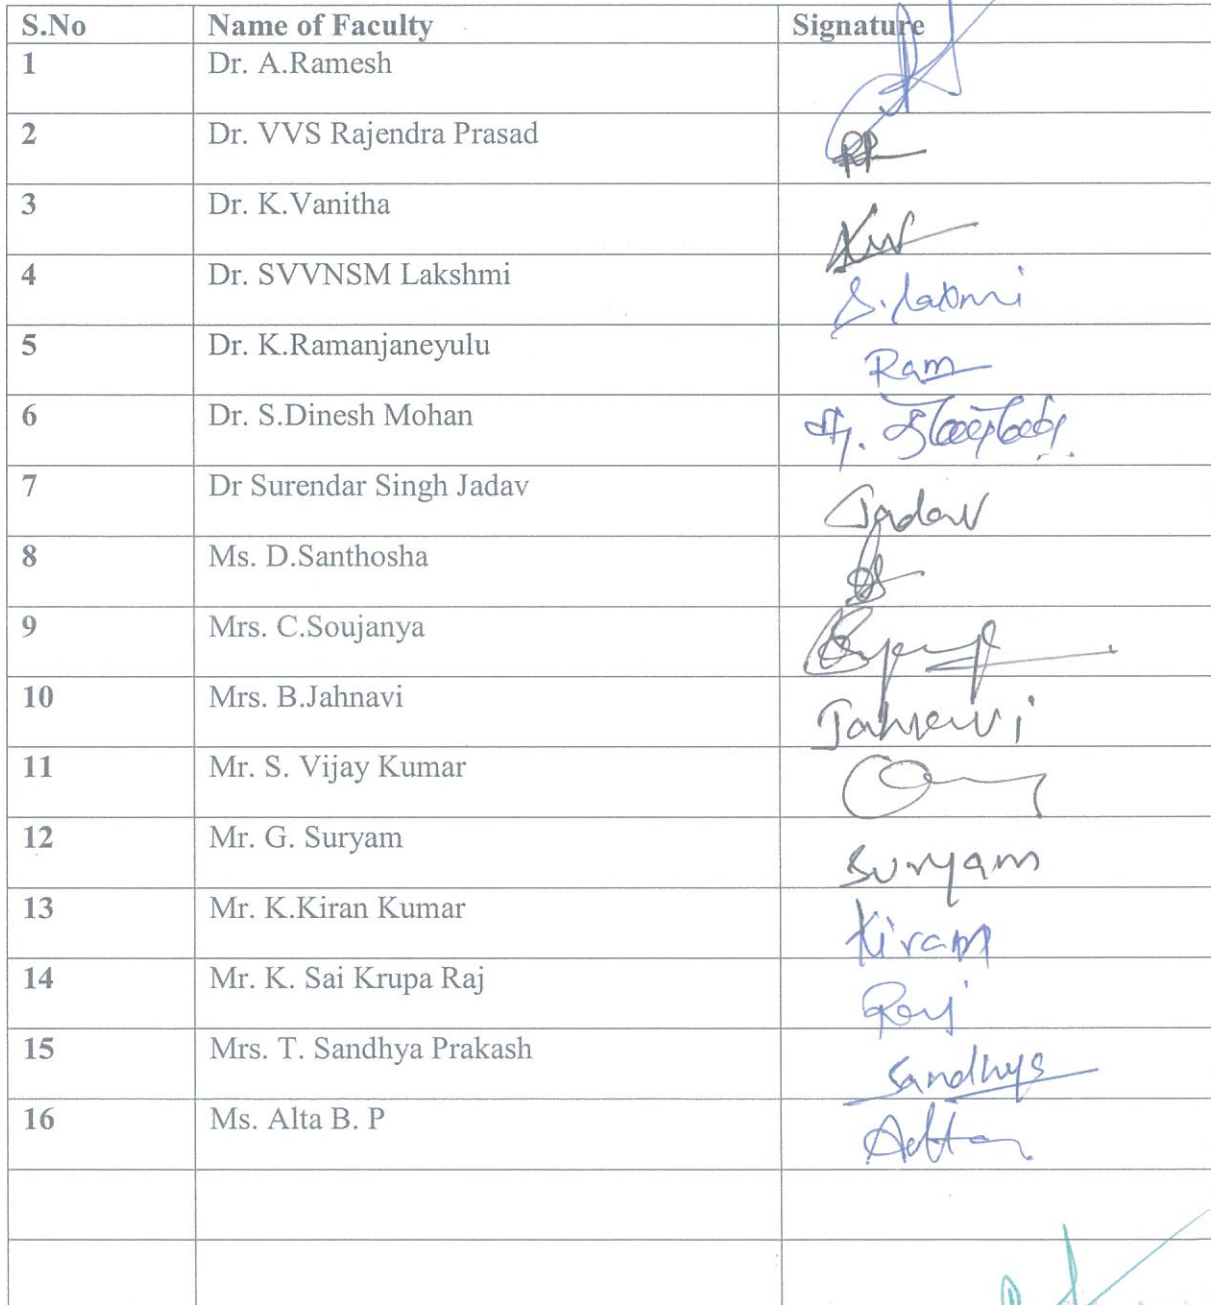 S.No Name of Faculty Signature
1 Dr. A.Ramesh
2 Dr. VVS Rajendra Prasad
3 Dr. K.Vanitha
4 Dr. SVVNSM Lakshmi S. Laxmi
5 Dr. K.Ramanjaneyulu Ram
6 Dr. S.Dinesh Mohan
7 Dr Surendar Singh Jadav Jadav
8 Ms. D.Santhosha
9 Mrs. C.Soujanya
10 Mrs. B.Jahnavi Jahnavi
11 Mr. S. Vijay Kumar
12 Mr. G. Suryam Suryam
13 Mr. K.Kiran Kumar Kiran
14 Mr. K. Sai Krupa Raj Raj
15 Mrs. T. Sandhya Prakash Sandhya
16 Ms. Alta B. P